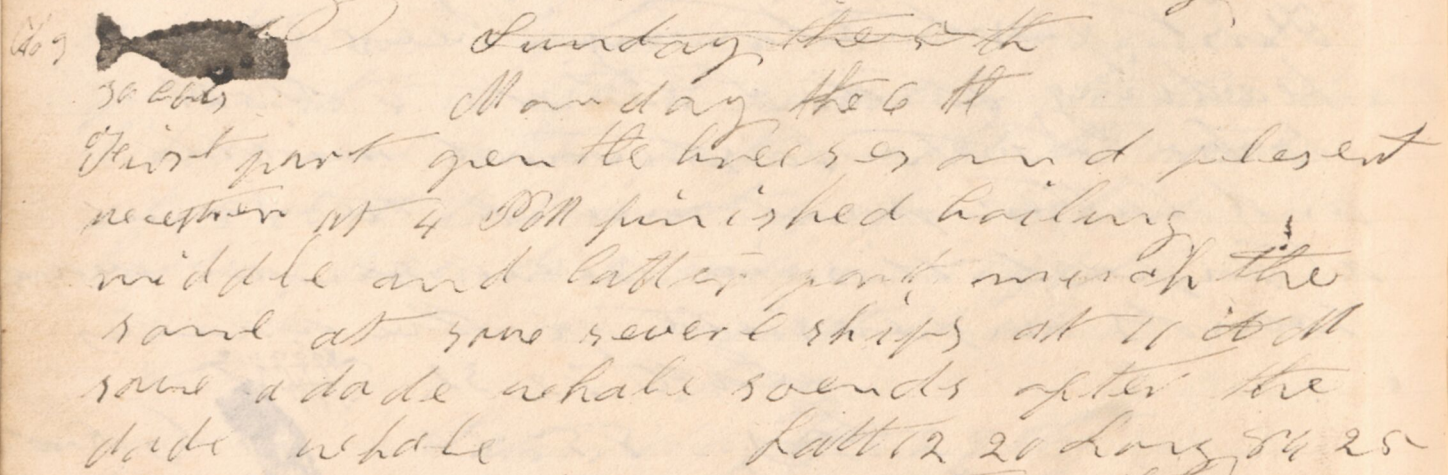 No 9 Sunday the 6 th
30 bbls Monday the 6 th
First part gentle breeses and plesent
weather At 4 PM finished boiling
middle and latter part much the
same at sone severl ships at 11 AM
sawe a dade whale sounds after the
dade whale Latt 12 20 Long 84 25